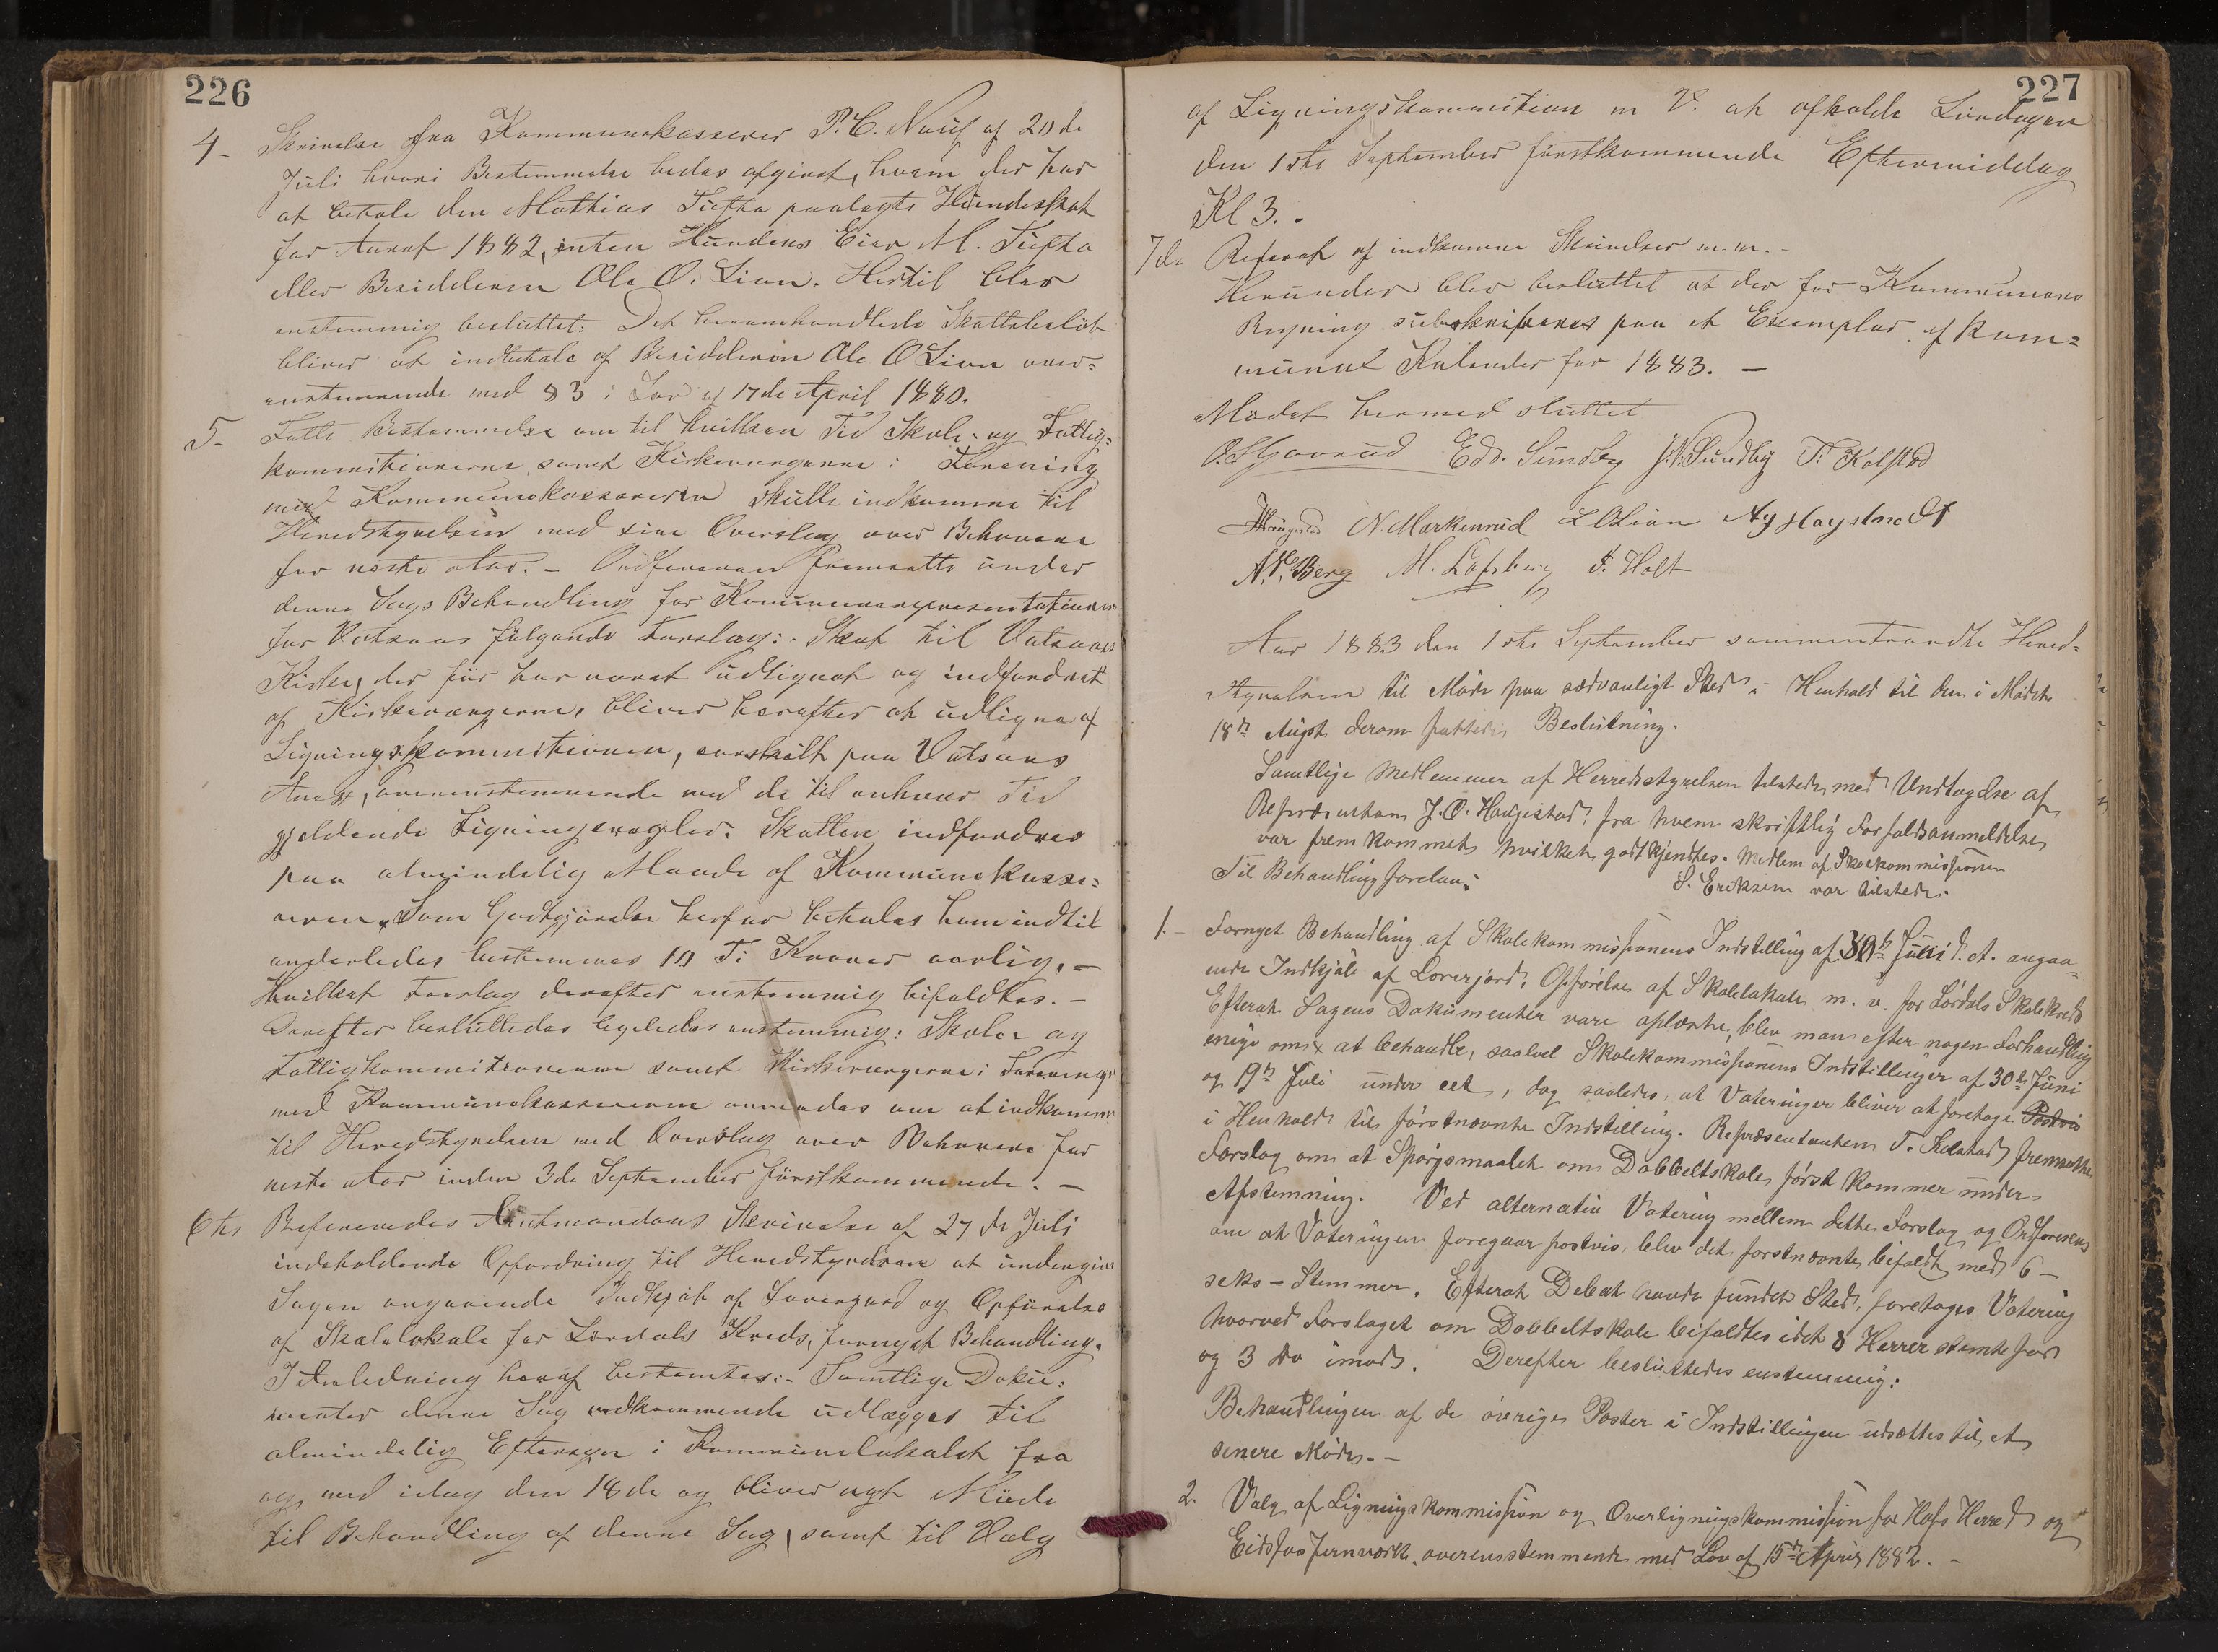 226
4- Skrivelse fra Kommunekasserer P. C. af 20de
Juli hvori Bestemmelse bedes afgivet, hvem der har
at betale den Mathias Tufta paalagte Hundeskat
for Aaret 1882, enten Hundens Eier M. Tufta
eller Besidderen Ole O. Lien. Hertil blev
enstemmig besluttet: Det heromhandlede Skattebeløb
bliver at indbetale af Besidderen Ole O Lien over=
enstemmende med § 3 i Lov af 17de April 1880.
5- Fatte Bestemmelse om til hvilken Tid Skole- og Fattig=
kommissionerne samt Kirkeværgerne i Forening
med Kommunekassereren skulle indkomme til
Herredstyrelsen med sine Overslag over Behovene
for næste Aar. - Ordføreren fremsatte under
denne Sags Behandling for Kommunerepresentationen
for Vatsaas følgende Forslag: - Skat til Vatsaas
Kirke, der før har været udlignet og indfordret
af Kirkeværgerne, bliver herefter at udligne af
Ligningskommissionen, særskilt paa Vatsaas
Anex, overensstemmende med de til enhver Tid
gjældende Ligningsregler. Skatten indfordres
paa almindelig Maade af Kommunekasse=
reren. Som Godtgjørelse herfor betales ham indtil
anderledes bestemmes 10 Ti Kroner aarlig. -
Hvilket Forslag derefter enstemmig bifaldtes. -
Derefter besluttedes ligeledes enstemmig: Skole- og
Fattigkommissionerne samt Kirkeværgerne i Forening
med Kommunekassereren anmodes om at indkomme
til Herredstyrelsen med Overslag over Behovene for
neste Aar inden 3de September førstkommende. -
6te Refereredes Amtmandens Skrivelse af 27de Juli
indeholdende Opfordring til Herredstyrelsen at undergive
Sagen angaaende Indkjøb af Lærergaard og Opførelse
af Skolelokale for Lørdals Kreds, fornyet Behandling.
I Anledning heraf bestemtes: - Samtlige Doku=
menter denne Sag vedkommende udlægges til
almindelig Eftersyn i Kommunelokalet fra
og med idag den 18de og bliver nyt Møde
til Behandling af denne Sag, samt til Valg
227
af Ligningskommission m V. at afholde Lørdagen
den 1ste September førstkommende Eftermiddag
Kl 3. -
7de Referat af indkomne Skrivelser m.m. -
Herunder blev besluttet at der for Kommunens
Regning subskriberes paa et Exemplar af Kom=
munal Kalender for 1883. -
Mødet hermed sluttet
Edv. Sundby J. N. Sundby T. Kolstad
N. Markerud L O Lian
A. P. Berg M. Løfsberg T. Holt
Aar 1883 den 1ste September sammentraadte Herred-
styrelsen til Møde paa sedvanligt Sted i Henhold til den i Mødet
18de August derom fattede Beslutning.
Samtlige Medlemmer af Herredsstyrelsen tilstede, med Undtagelse af
Repræsentant J. O. Haugestad, fra hvem skriftlig Forfaldsanmeldelse
var fremkommet, hvilket godtkjendtes. Medlem af Skolekommissionen
S. Eriksen var tilstede.
Til Behandling forelaa:
1. - Fornyet Behandling af Skolekommissionens Indstilling af 30te Juni d. A. angaa-
ende Indkjøb af Lærerjord, Opførelse af Skolelokale m. v. for Lørdals Skolekreds
Efterat Sagens Dokumenter vare oplæste, blev man efter nogen Forhandling
enige om at behandle, saavel Skolekommissionens Indstillinger af 30te Juni
og 19de Juli under eet, dog saaledes, at Voteringer bliver at foretage Postvis
i Henhold til førstnævnte Indstilling. Repræsentanten T. Kolstad fremsatte
Forslag om at Spørgsmaalet om Dobbeltskole først kommer under
Afstemning. Ved alternativ Votering mellem dette Forslag og Ordførerens
om at Voteringen foregaar postvis, blev det førstnævnte bifaldt med 6 -
seks - Stemmer. Efterat Debat havde fundet Sted, foretoges Votering
hvorved Forslaget om Dobbeltskole bifaldtes idet 8 Herrer stemte for
og 3 do imod. Derefter besluttedes enstemmig:
Behandlingen af de øvrige Poster i Indstillingen udsættes til et
senere Møde. -
2. Valg af Ligningskommission og Overligningskommission for Hofs Herred og
Eidsfos Jernværk, overensstemmende med Lov af 15de April 1882. -